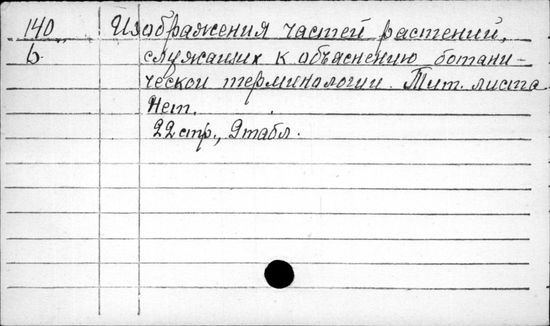 140 Изображения частей растений,
b. служащих к объяснению ботани-
ческой терминологии. Тит. листа
нет.
22 стр., 9 табл.